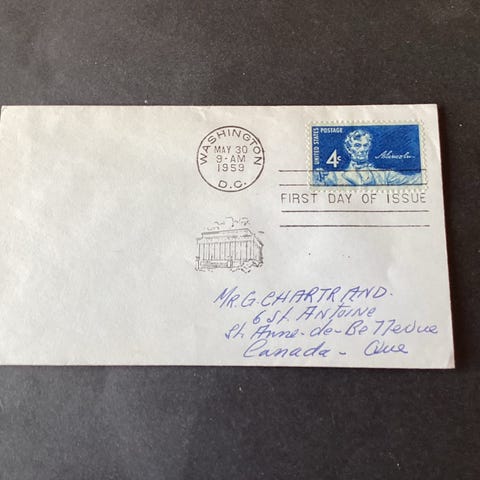 WASHINGTON
MAY 30
9-AM
1959
D.C.
UNITED STATES POSTAGE
4c
A. Lincoln
FIRST DAY OF ISSUE
MR. G. CHARTRAND.
6 St. Antoine
St. Anne-de-Bellevue
Canada - Que